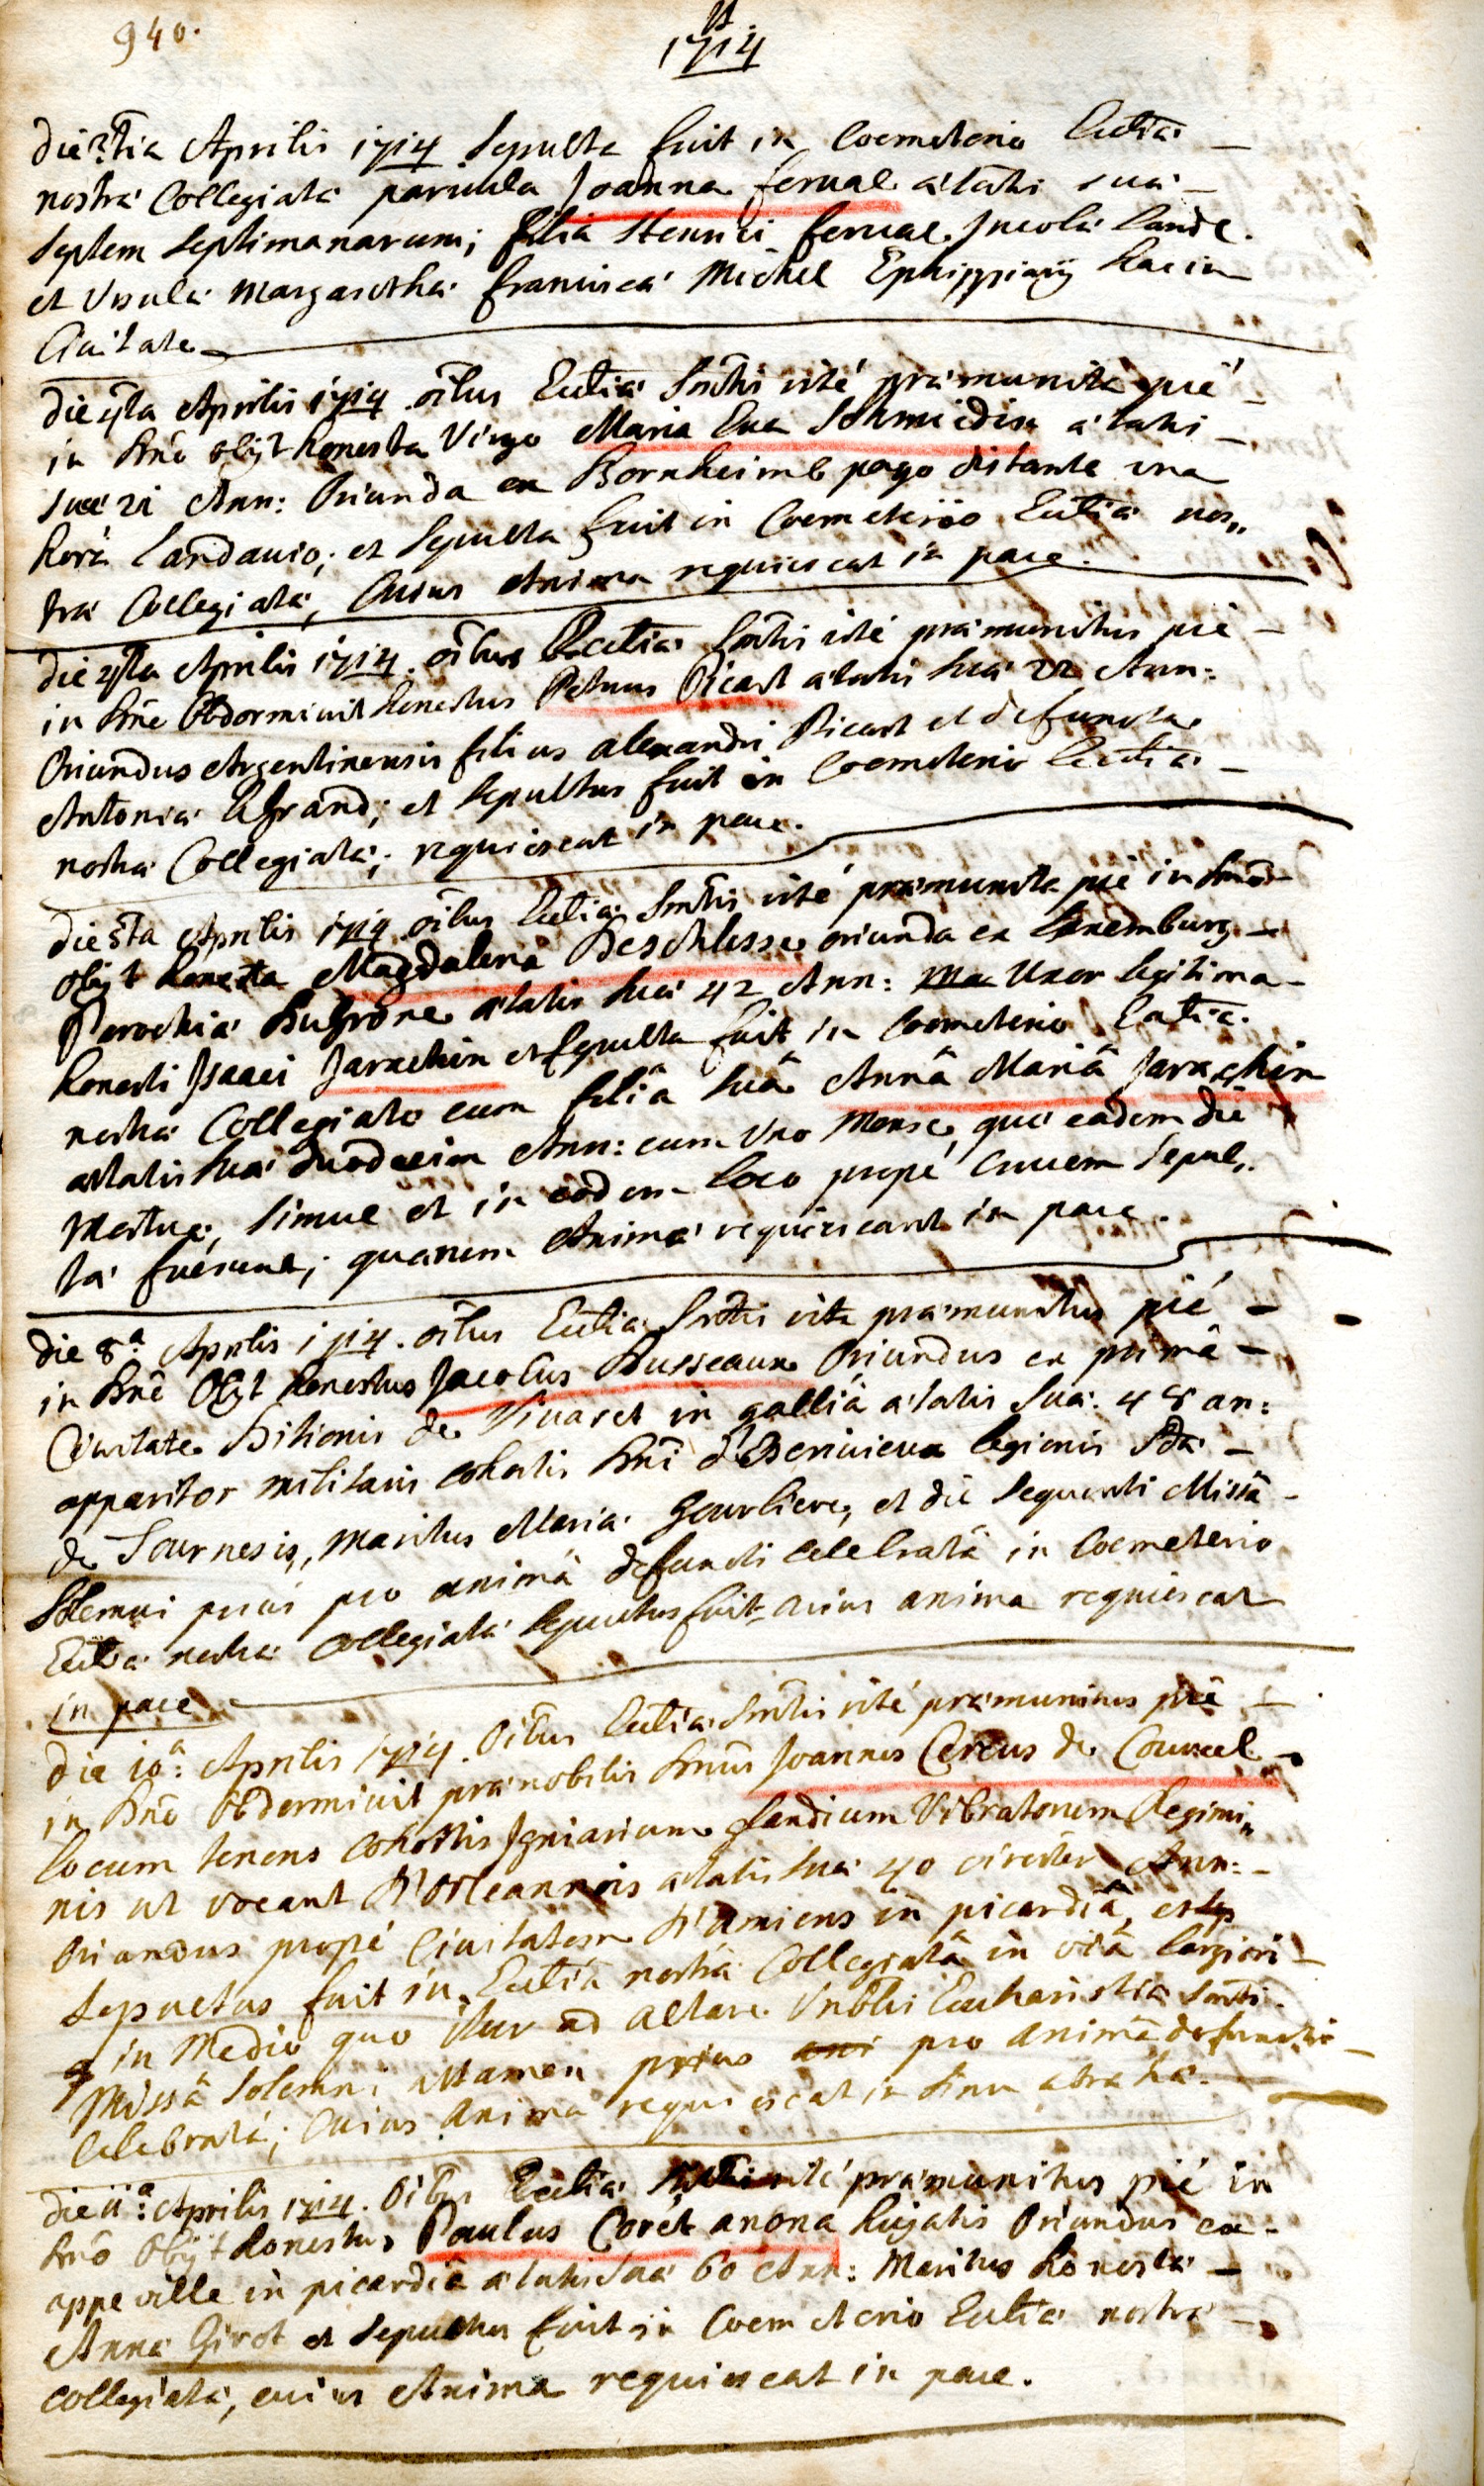 940.
1714
die 3tia Aprilis 1714 Sepulta fuit in Coemeterio Ecclīa
nostra Collegiata parvula Joanna ferval atatis sua
septem septimanarum; filia Henrici ferval Incola Land.
et Ursula Margaretha francisca Michel Ephippiarij hac in
Civitate
die 4ta Aprilis 1714. oībus Ecclīa Sāctis ritè pramunita piè
in Dnō obijt honesta Virgo Maria Eva Schmiedin atatis
sua 21 Ann: Oriunda ex Bornheim pago distante una
hora Landavio; et sepulta fuit in Coemeterio Ecclīa nos„
tra Collegiata, Cuius Anima requiescat in pace.
die 4ta Aprilis 1714. oībus Ecclīa Sāctis ritè pramunitus piè
in Dnō Obdormivit honestus Petrus Ricart atatis sua 22 Ann:
Oriundus Argentinensis filius alexandri Ricart et defuncta
Antonia legrand; et sepultus fuit in Coemeterio Ecclīa
nostra Collegiata; requiescat in pace.
die 5ta Aprilis 1714 oībus Ecclīa Sāctis ritè pramunita piè in Dnō
obijt honesta Magdalena Deschlesse oriunda ex Luxemburg
Parochia atatis sua 42 Ann: Uxor legitima
honesti Isaaci Jarachin et sepulta fuit in Coemeterio Ecclīa
nostra Collegiata cum filiâ suâ Annâ Mariâ Jarachin
atatis sua duodecim Ann: cum Uno Mense, qua eadem die
Mortua, simul et in eodem loco propè Crucem sepul„
ta fuerunt; quarum Anima requiescant in pace.
die 8a Aprilis 1714. oībus Ecclīa Sāctis ritè pramunitus piè
in Dnō Obijt honestus Jacobus Busseaux Oriundus ex primâ
Civitate Ditionis de Vivaret in galliâ atatis sua 48 an:
apparitor militaris cohortis Dnī legionis
de Tournesis, Maritus Maria Gourliere, et die sequenti Missâ
Solemni prius pro animâ defuncti celebratâ in Coemeterio
Ecclīa nostra Collegiata sepultus fuit cuius anima requiescat
in pace
die 10a: Aprilis 1714. Oībus Ecclīa Sāctis ritè pramunitus piè
in Dnō Obdormivit pranobilis Dnus Joannes Cercus de Courcel
locum tenens cohortis Igniarium glandium Vibratorum Regimi„
nis ut vocant D'Orleannois atatis sua 40 circiter Ann:
Oriundus propè Civitatem D'Amiens in picardiâ, et
sepultus fuit in Ecclīâ nostrâ Collegiatâ in viâ largiori
in Medio quo itur ad altare Venblis Eucharistia Sācti
Missâ Solemni attamen prius pro animâ defuncti
celebratâ; Cuius Anima requiescat in sinu abraha.
die 11a: Aprilis 1714. Oībus Ecclīa Sāctis ritè pramunitus piè in
Dnō Obijt honestus Paulus Corèt anona hujatis Oriundus ex
appeville in picardiâ atatis sua 60 Ann: Maritus honesta
Anna Girot et sepultus fuit in Coemeterio Ecclīa nostra
collegiata, cuius Anima requiescat in pace.